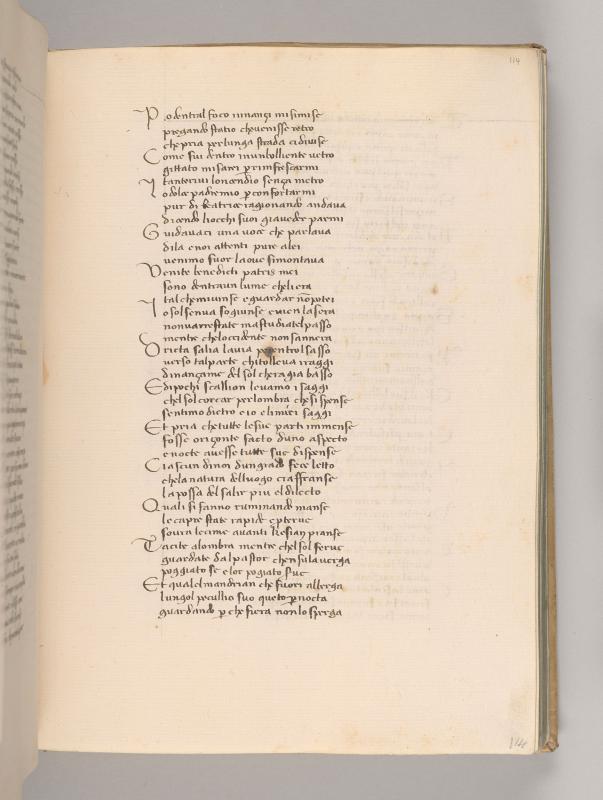 114
Poi dentral foco innançi misimise
pregando statio chevenisse retro
che pria perlunga strada cidivise
Come fui dentro inunbolliente vetro
gittato misarei p rinfrescarmi
Itanterivi loncendio sença metro
o dolce padre mio p confortarmi
pur di beatrice ragionando andava
dicendo liocchi suoi gia veder parmi
Guidavaci una voce che parlava
dila e noi attenti pure alei
venimo fuor laove simontava
Venite benedicti patris mei
sono dentraun lume cheliera
Ital chemivinse e guardar nōpotei
o sol senva sogiunse evien lasera
nonvarrestate mastudiatel passo
mentre cheloccidente nonsannera
Dricta salia lavia per entrol sasso
verso tal parte chitolleva iraggi
dinançame del sol chera gia basso
Edipochi scallion levamo i saggi
chel sol corcar per lombra chesi spense
sentimo dietro eio elimiei saggi
Et pria che tutte lesue parti immense
fosse oriçonte facto duno aspecto
e nocte avesse tutte sue dispense
Ciascun dinoi dungrado fece letto
chela natura delluogo ciaffranse
la possa del salir piu eldilecto
Quali si fanno ruminando manse
le capre state rapide e proterve
sovra lecime avanti che sian pranse
Tacite alombra mentre chel sol ferve
guardate dal pastor chensula verga
poggiato se elor pogiato serve
Et qualel mandrian che fuori allerga
lungol peculio suo queto pnocta
guardando p che fiera nonlo sperga
114